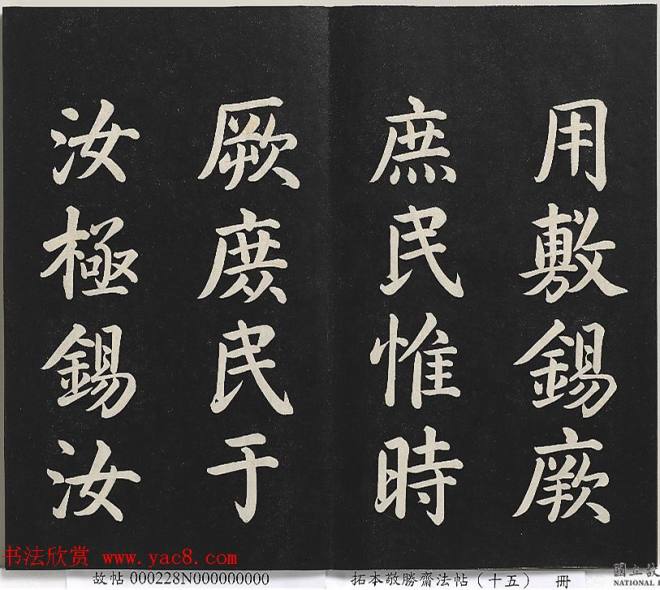 用敷錫厥
庶民惟時
厥庶民于
汝極錫汝
书法欣赏 www.yac8.com
故帖 000228N000000000
拓本敬勝齋法帖（十五） 冊
國立故
NATIONAL